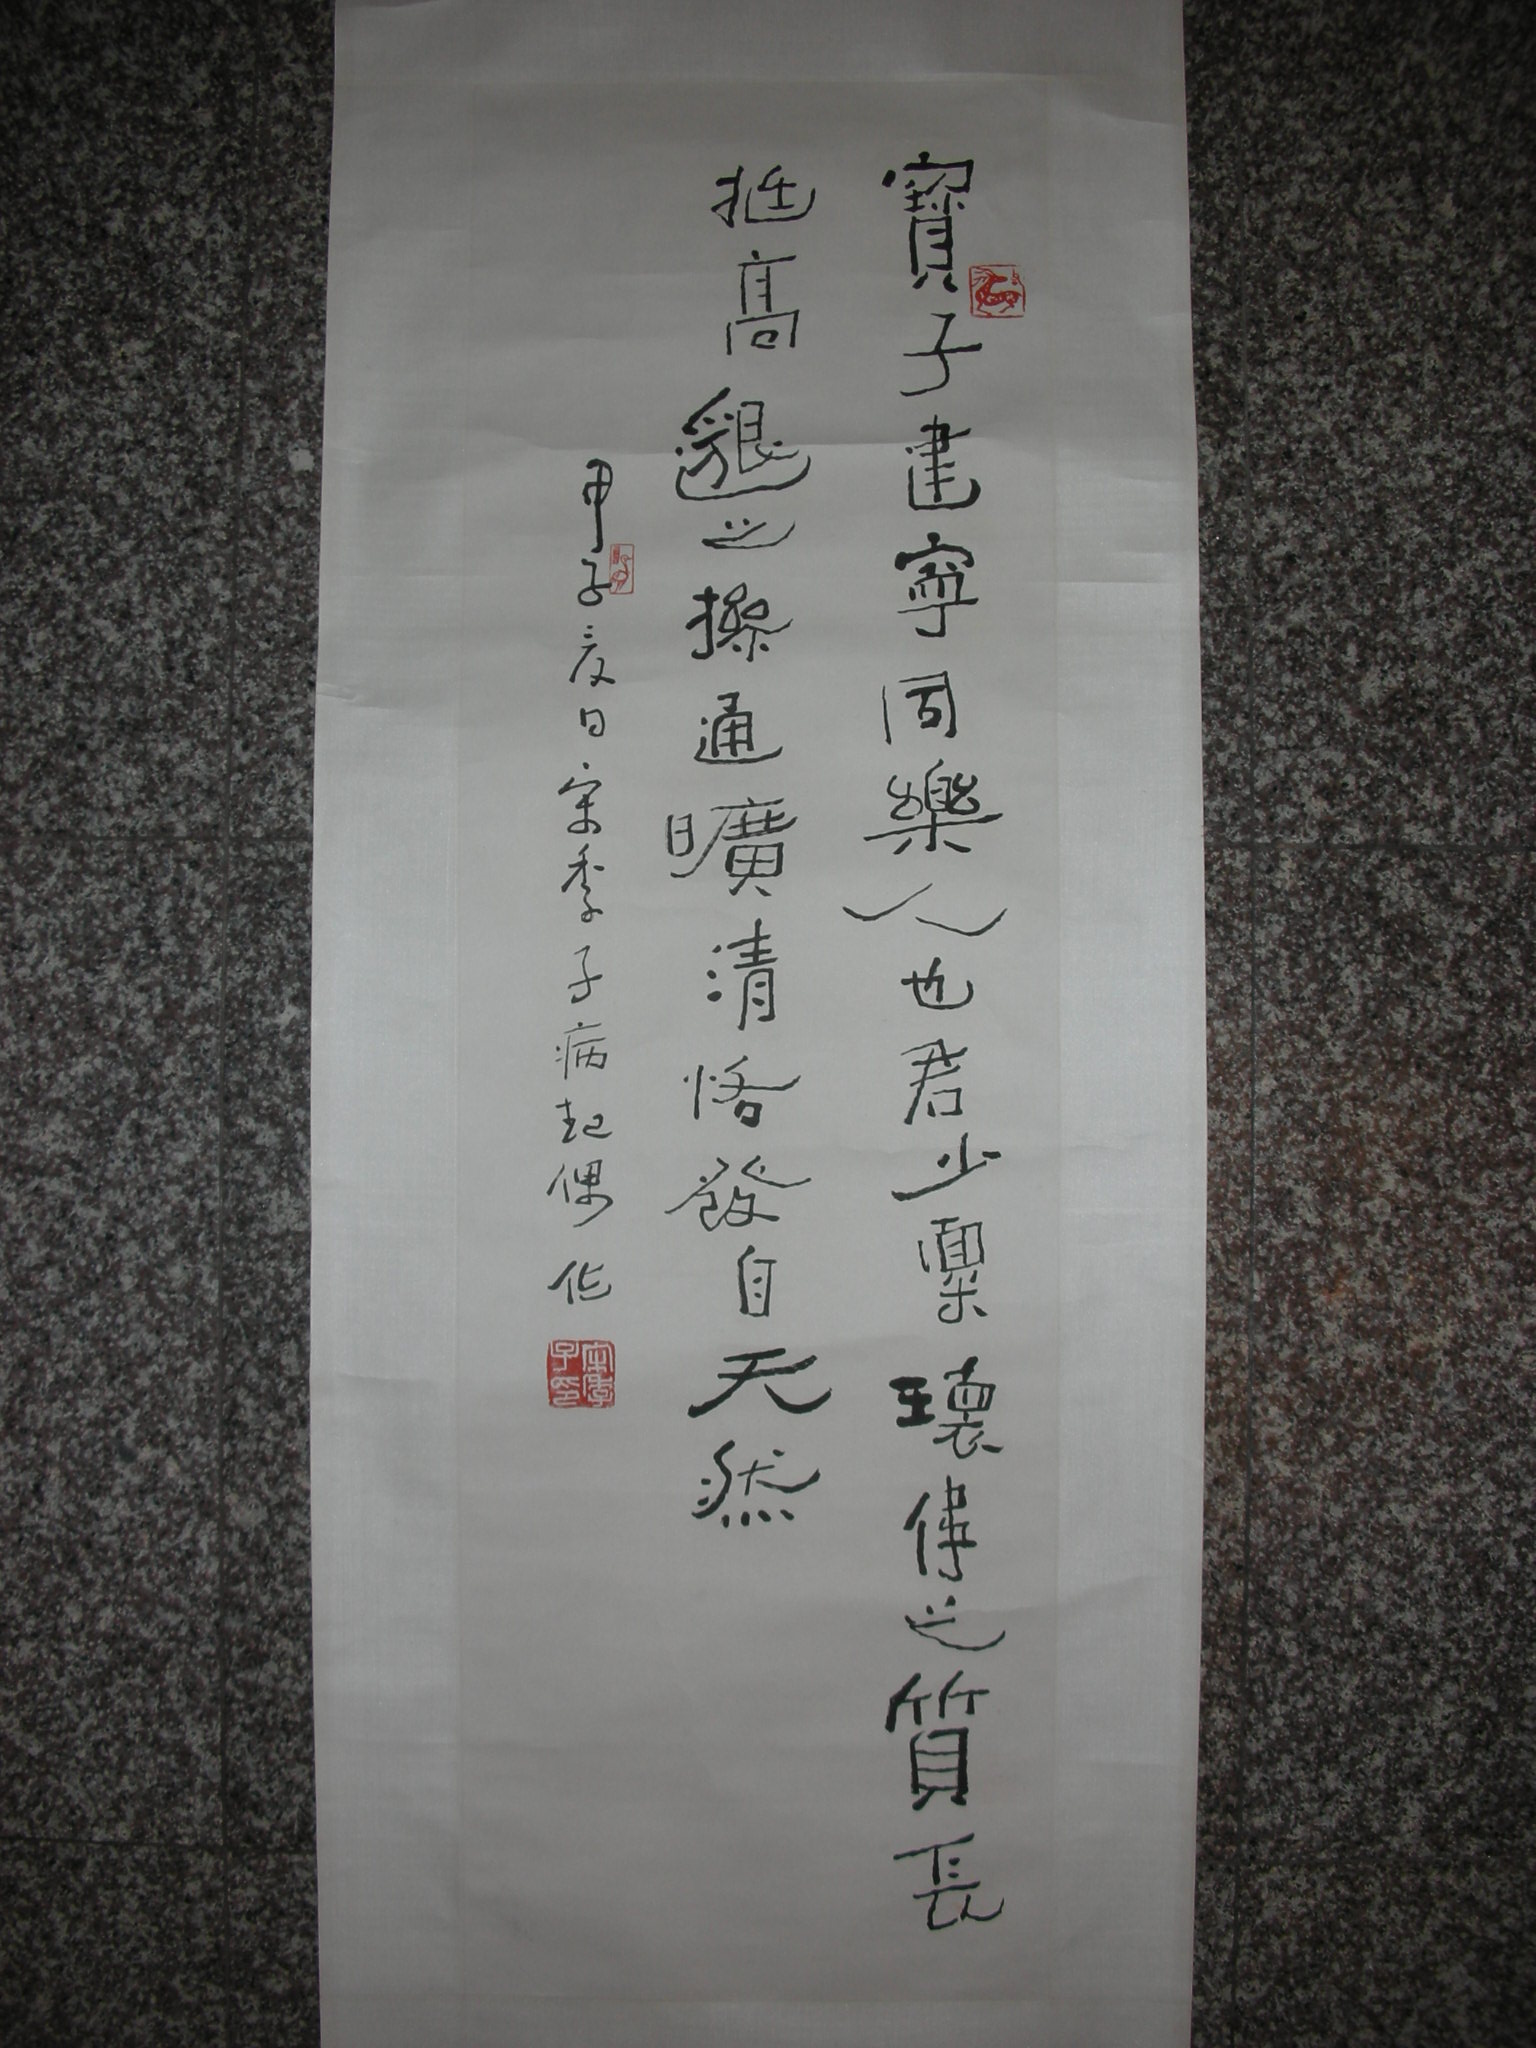 寶子建寧同樂人也君少稟瓌偉之質長
挺高邈之操通曠清恪發自天然
甲子夏日宋季子病起偶作
宋季子印